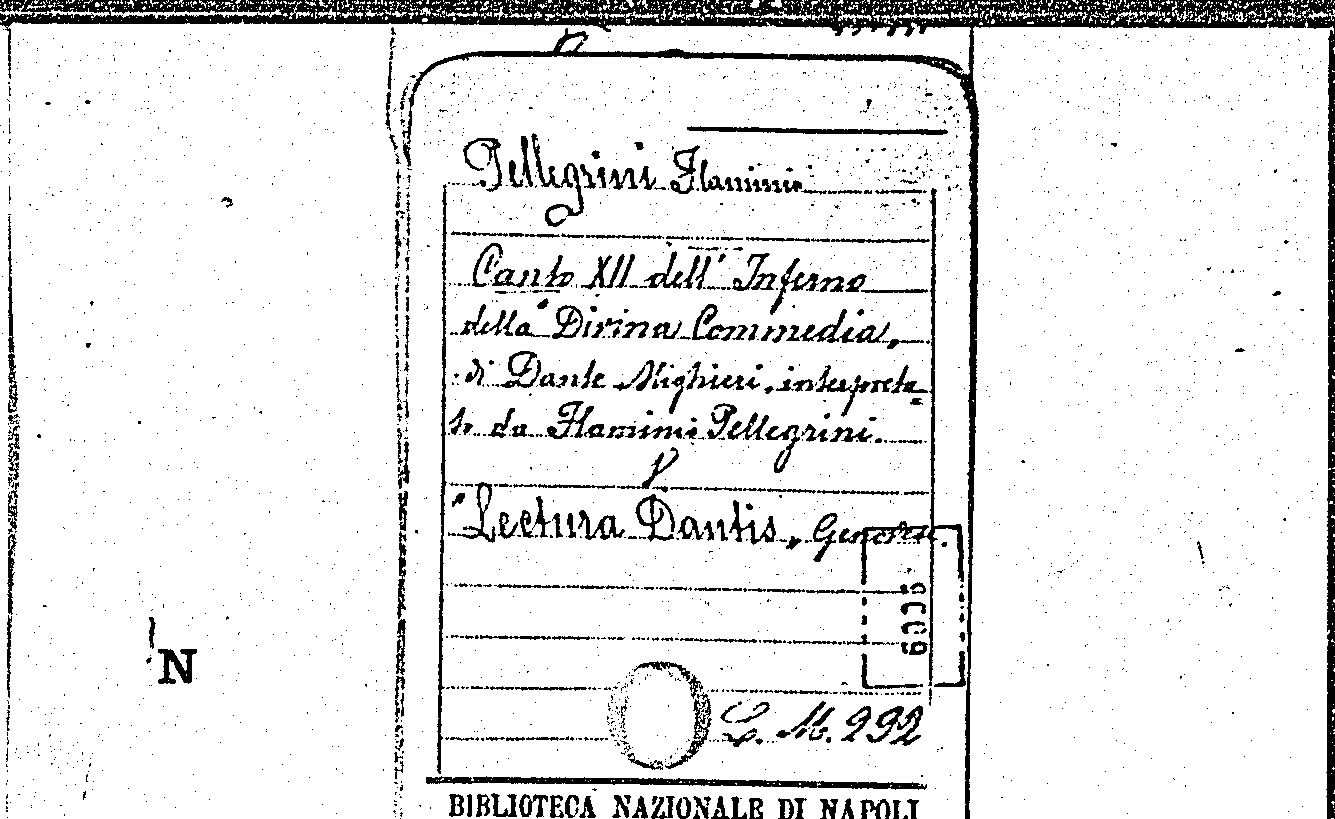 Pellegrini Flaminio
Canto XII dell' Inferno
della "Divina Commedia,
di Dante Alighieri, interpreta-
to da Flaminio Pellegrini.
"Lectura Dantis, Genovese.
6006
L. M. 292
N
BIBLIOTECA NAZIONALE DI NAPOLI